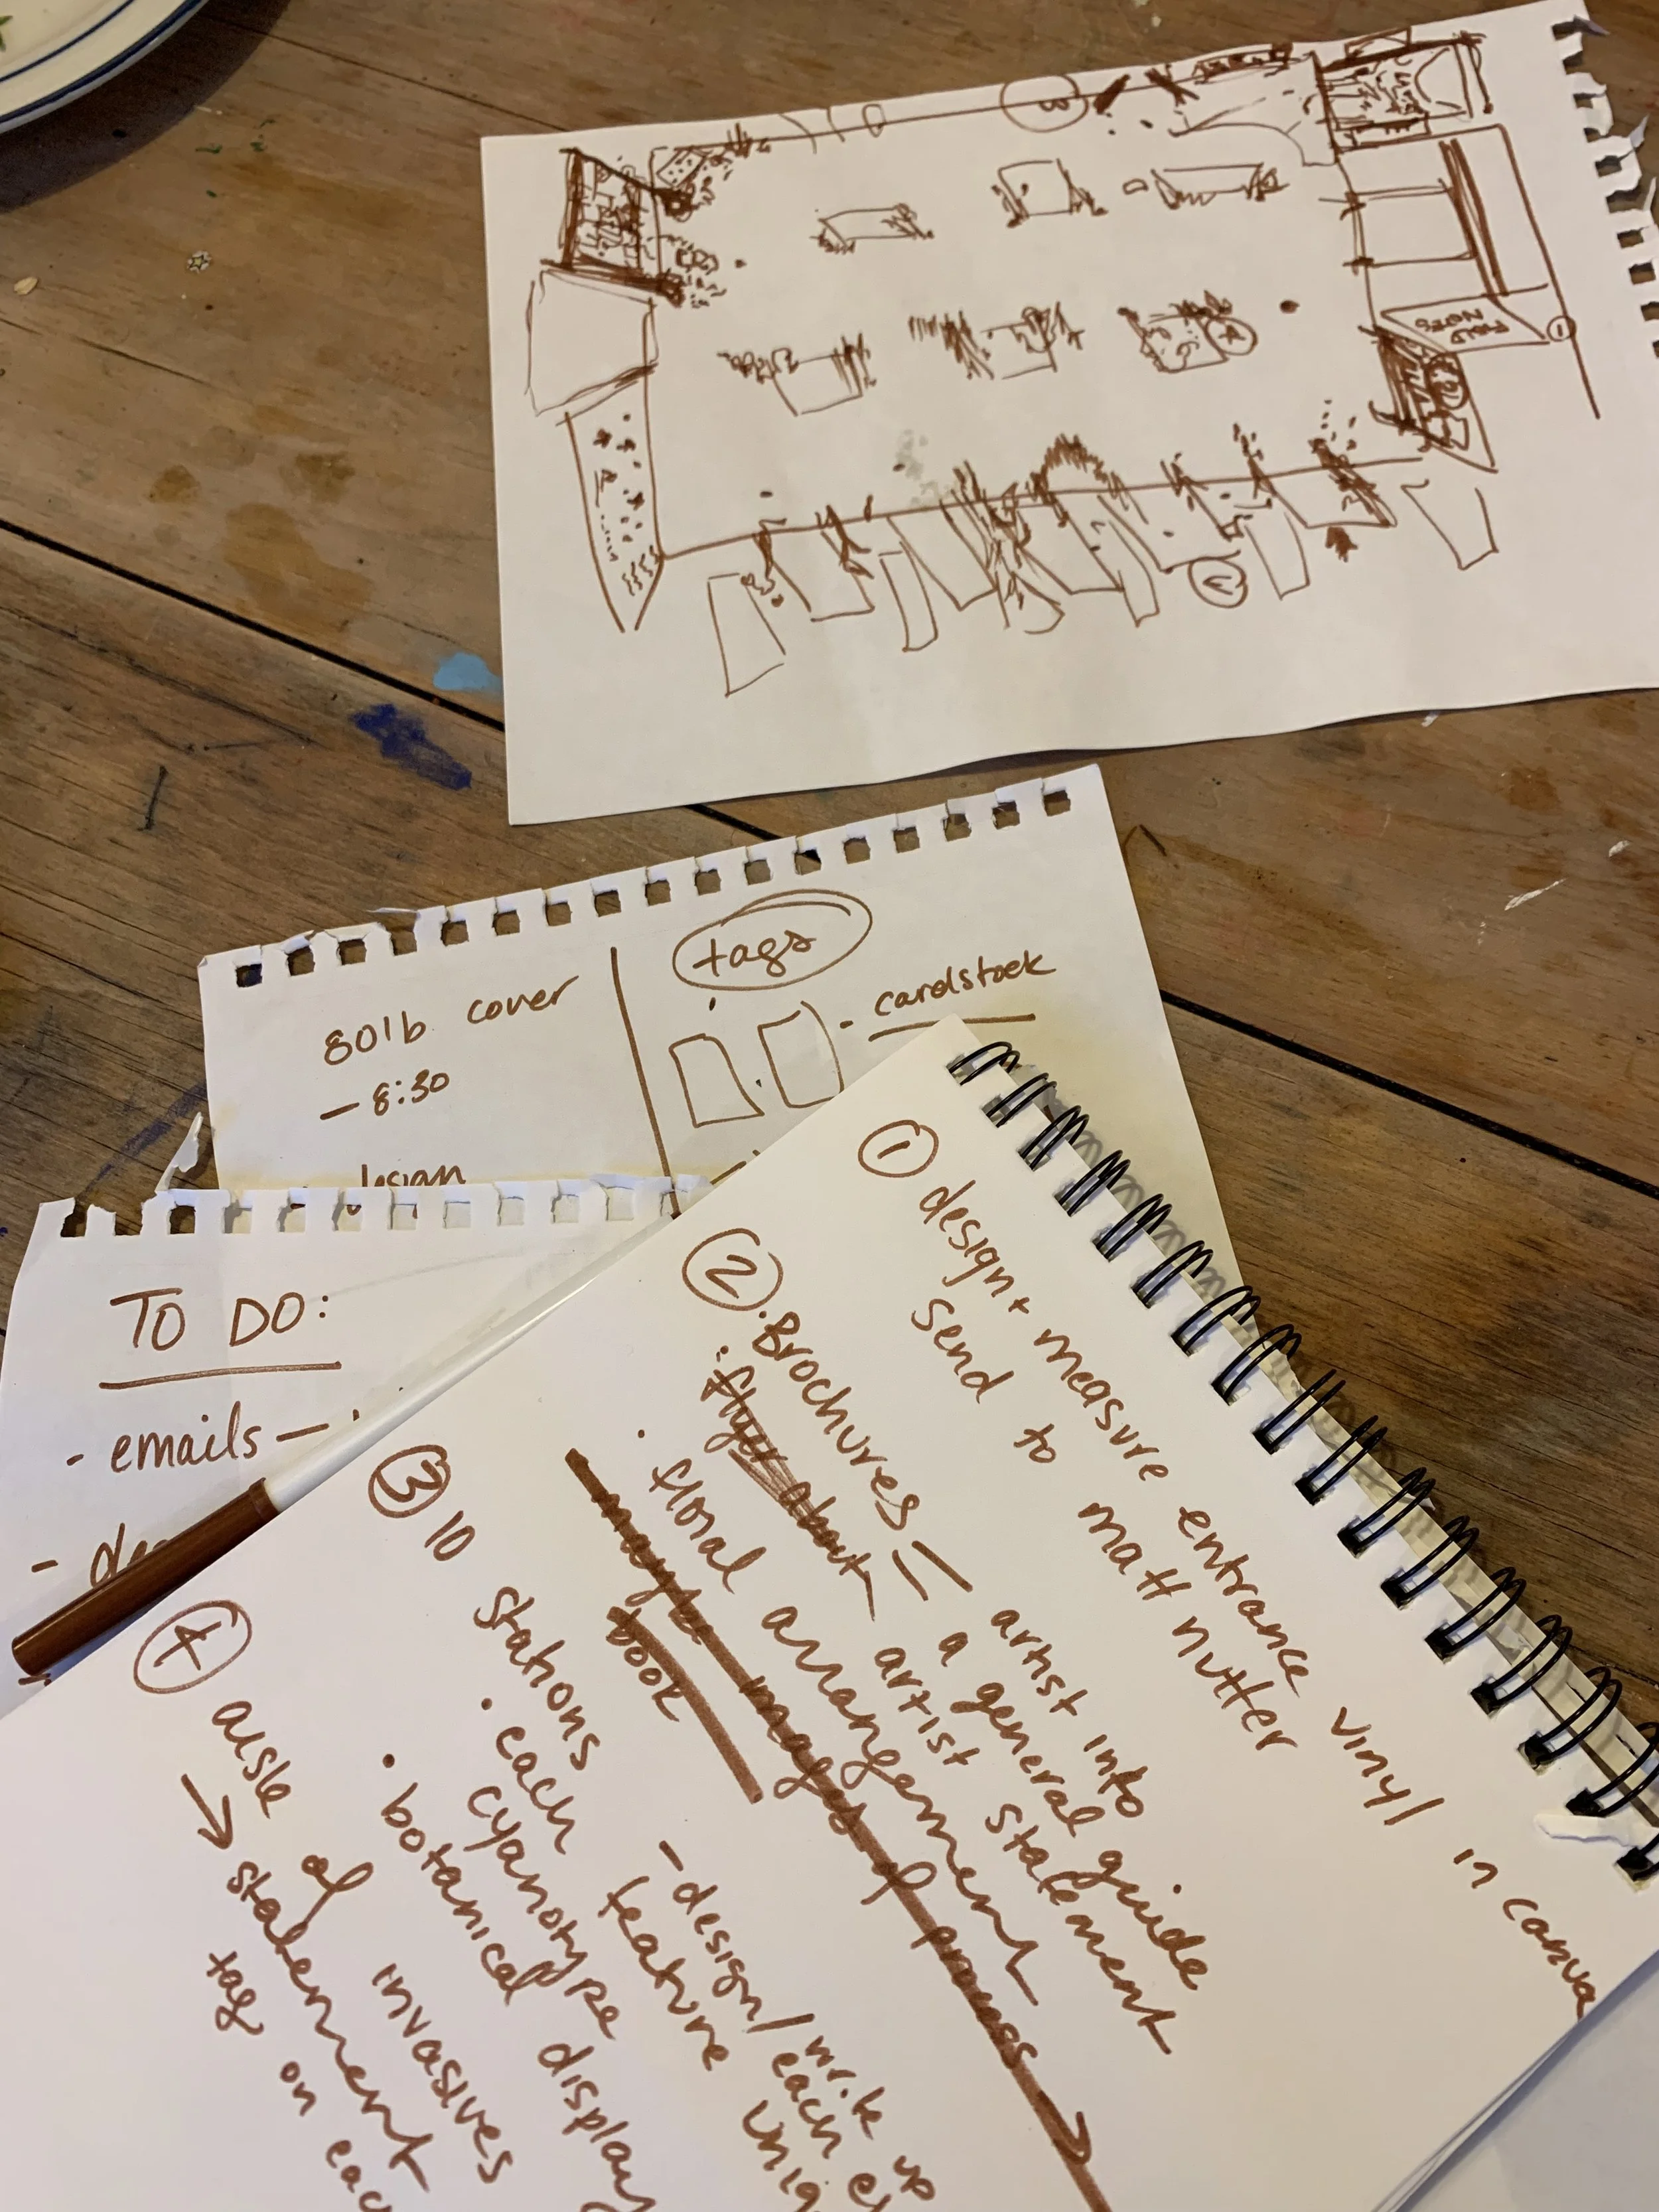 3
FIELD
NOTES
1
2
4
80lb cover
- 8:30
design
tags
- cardstock
TO DO:
- emails -
- de
① design + measure entrance vinyl in canva
send to matt nutter
② · Brochures = artist into
a general guide
· flyer about artist statement
· floral arrangement
maybe images of process
book
③ 10 stations
· each cyanotype
· botanical display
- design / write up
feature each
④ aisle of invasives
→ statement
tag on eac